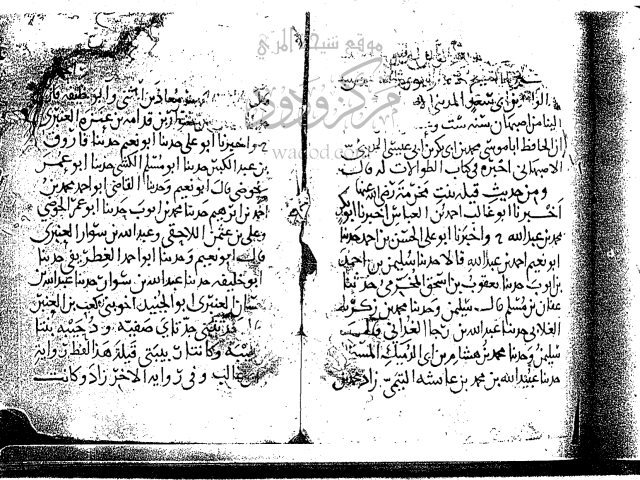 موقع شبكة المربي
مركز ودود
wadod
الاصبهاني اخبره في كتاب الطوالات له قال
ومن حديث قيلة بنت مخرمة رضي الله عنها
اخبرنا ابو غالب احمد بن العباس اخبرنا ابو بكر
محمد بن عبد الله ح واخبرنا ابو علي الحسن بن احمد حدثنا
ابو نعيم احمد بن عبد الله قالا حدثنا سليمن بن احمد
بن ايوب حدثنا يعقوب بن اسحق المخرمي حدثنا
عفان بن مسلم قال سليمن وحدثنا محمد بن زكريا
الغلابي حدثنا عبد الله بن رجا الغداني قال
سليمن وحدثنا محمد بن هشام بن ابي الدميك المستملي
حدثنا عبيد الله بن محمد بن عائشة التيمي زاد محمد بن
معاذ بن المثنى وابو خليفة قالوا
بن قدامة بن عنزة العنبري
ح واخبرنا ابو علي حدثنا ابو نعيم حدثنا فاروق
بن عبد الكبير حدثنا ابو مسلم الكشي حدثنا ابو عمر
الحوضي قال ابو نعيم وحدثنا القاضي ابو احمد محمد بن
احمد بن ابرهيم حدثنا محمد بن ايوب حدثنا ابو عمر الحوضي
وعلي بن عثمن اللاحقي وعبد الله بن سوار العنبري
قال ابو نعيم وحدثنا ابو احمد الغطريفي حدثنا
ابو خليفة حدثنا عبد الله بن سوار حدثنا عبد الله بن
حسان العنبري ابو الجنيد اخو بني كعب بن العنبر
حدثتني جدتاي صفية ودحيبة بنتا
عليبة وكانتا ربيبتي قيلة هذا لفظ رواية
ابي غالب وفي رواية الاخر زاد وكانت